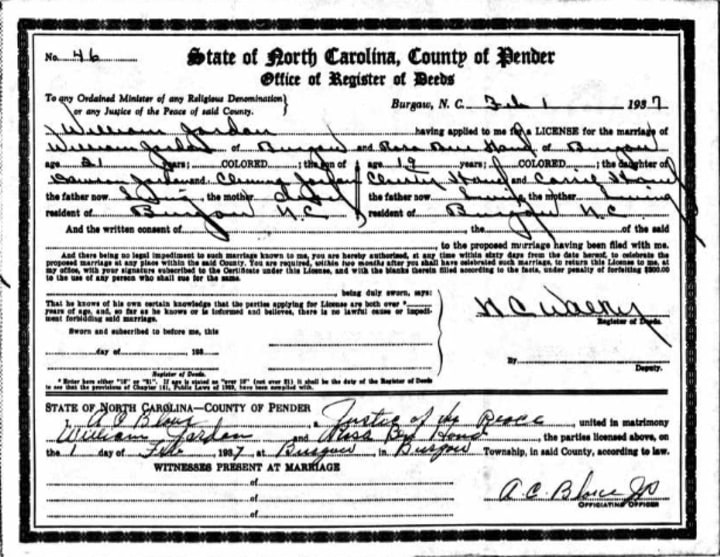 No. 46
State of North Carolina, County of Pender
Office of Register of Deeds
To any Ordained Minister of any Religious Denomination
or any Justice of the Peace of said County.
Burgaw, N. C. Feb 1 1937
William Jordan having applied to me for a LICENSE for the marriage of
William Jordan of Burgaw and Rosa of Burgaw
age 21 years; COLORED; the son of
age 19 years; COLORED; the daughter of
Jordan and Jordan
Chester and Carrie
the father now living, the mother
the father now living, the mother living
resident of Burgaw N.C.
resident of Burgaw N.C.
And the written consent of , the of the said
, to the proposed marriage having been filed with me.
And there being no legal impediment to such marriage known to me, you are hereby authorized, at any time within sixty days from the date hereof, to celebrate the
proposed marriage at any place within the said County. You are required, within two months after you shall have celebrated such marriage, to return this License to me, at
my office, with your signature subscribed to the Certificate under this License, and with the blanks therein filled according to the facts, under penalty of forfeiting $200.00
to the use of any person who shall sue for the same.
, being duly sworn, says:
That he knows of his own certain knowledge that the parties applying for License are both over *
years of age, and, so far as he knows or is informed and believes, there is no lawful cause or impedi-
ment forbidding said marriage.
Register of Deeds.
Sworn and subscribed to before me, this
day of , 193
By
Deputy.
Register of Deeds.
* Enter here either "18" or "21". If age is stated as "over 18" (not over 21) it shall be the duty of the Register of Deeds
to see that the provisions of Chapter , Public Laws of , have been complied with.
STATE OF NORTH CAROLINA—COUNTY OF PENDER
I, A C , a Justice of the Peace, united in matrimony
William Jordan and Rosa , the parties licensed above, on
the 1 day of Feb 1937, at Burgaw, in Burgaw Township, in said County, according to law.
WITNESSES PRESENT AT MARRIAGE
of
of
of
A. C. JP
OFFICIATING OFFICER